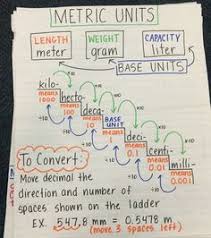 METRIC UNITS
LENGTH WEIGHT CAPACITY
meter gram liter
BASE UNITS
kilo-
means
1000
hecto-
means
100
deca-
means
10
BASE
UNIT
deci-
means
0.1
centi-
means
0.01
milli-
means
0.001
÷10 ÷10 ÷10
To Convert:
Move decimal the
direction and number of
spaces shown on the ladder
EX. 547.8 mm = 0.5478 m
(move 3 spaces left)